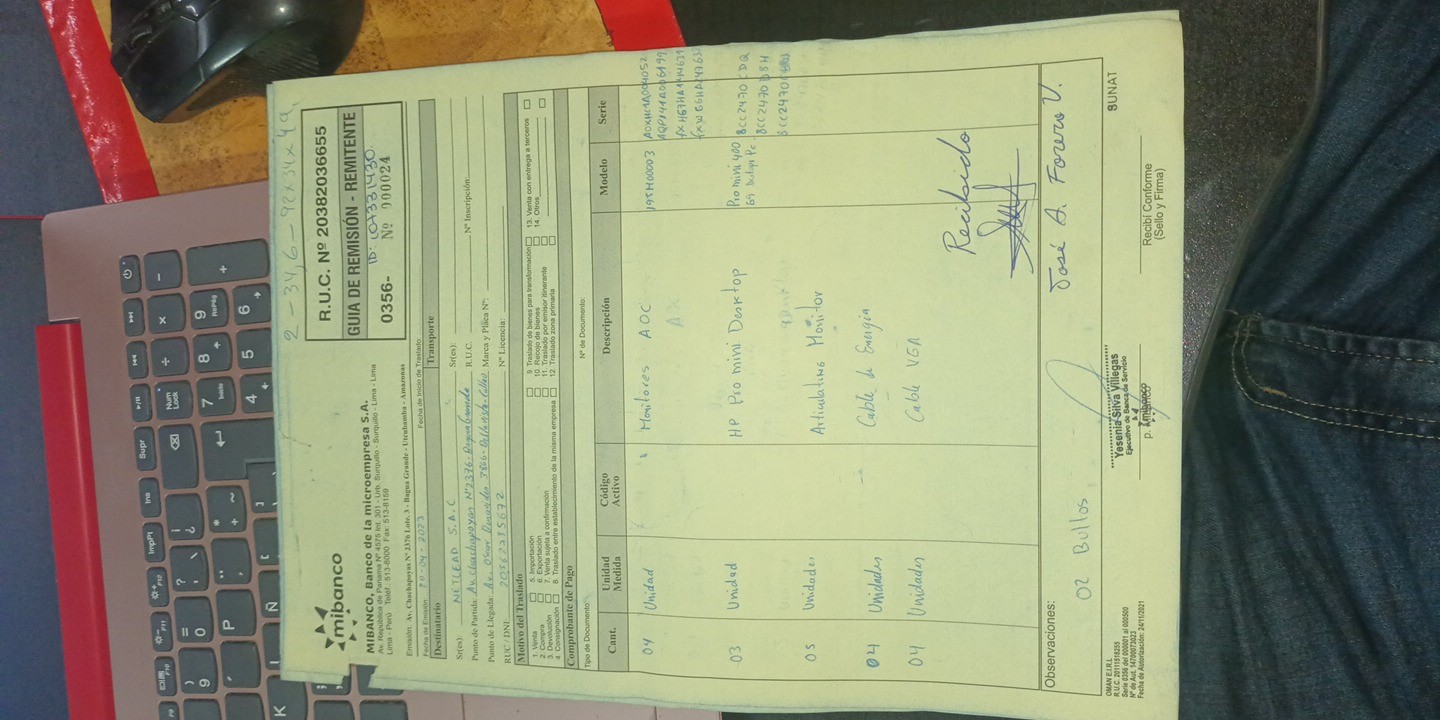 2 - 34,6 - 92x34x49
mibanco
MIBANCO, Banco de la microempresa S.A.
Av. República de Panamá N° 4575 Int. 301 - Urb. Surquillo - Surquillo - Lima - Lima
Lima - Perú Telef.: 513-8000 Fax: 513-8159
Emisión: Av. Chachapoyas N° 2376 Lote. 3 - Bagua Grande - Utcubamba - Amazonas
R.U.C. Nº 20382036655
GUIA DE REMISIÓN - REMITENTE
ID: 107331430
0356- Nº 000024
Fecha de Emisión: 20-04-2023 Fecha de Inicio de Traslado:
Destinatario Transporte
Sr(es): NETLEAD S.A.C Sr(es):
Punto de Partida: Av. Chachapoyas N°2376-Bagua Grande R.U.C.: Nº Inscripción:
Punto de Llegada: Av. Oscar Benavides 3866-Bellavista-Callao Marca y Placa Nº:
RUC / DNI: 20562385672 N° Licencia:
Motivo del Traslado
1. Venta 5. Importación 9. Traslado de bienes para transformación 13. Venta con entrega a terceros
2. Compra 6. Exportación 10. Recojo de bienes 14. Otros
3. Devolución 7. Venta sujeta a confirmación 11. Traslado por emisor itinerante
4. Consignación 8. Traslado entre establecimiento de la misma empresa 12. Traslado zona primaria
Comprobante de Pago
Tipo de Documento: Nº de Documento:
Cant. Unidad Medida Código Activo Descripción Modelo Serie
04 Unidad Monitores AOC 195M00003
03 Unidad HP Pro mini Desktop Pro mini 400 8CC2470CDQ
G9 Desktop Pc. 8CC2470DSH
05 Unidades Articulating Monitor
04 Unidades Cable de Energía
04 Unidades Cable VGA
Recibido
José A. Forero V.
Observaciones:
02 Bultos
Yesenia Silva Villegas
Ejecutivo de Banca de Servicio
mibanco
p. Mibanco
Recibí Conforme
(Sello y Firma)
SUNAT
OMAN E.I.R.L
R.U.C. 20111518255
Serie 0356 del 000001 al 000500
N° de Aut. 14700073023
Fecha de Autorización: 24/11/2021